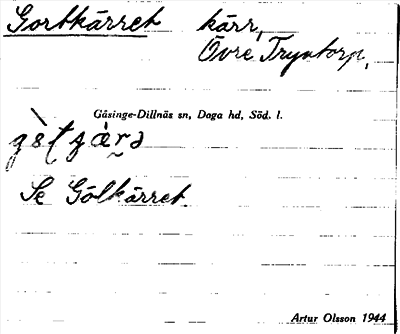 Gortkärret kärr,
Övre Tryntorp,
Gåsinge-Dillnäs sn, Daga hd, Söd. l.
Se Gölkärret
Artur Olsson 1944